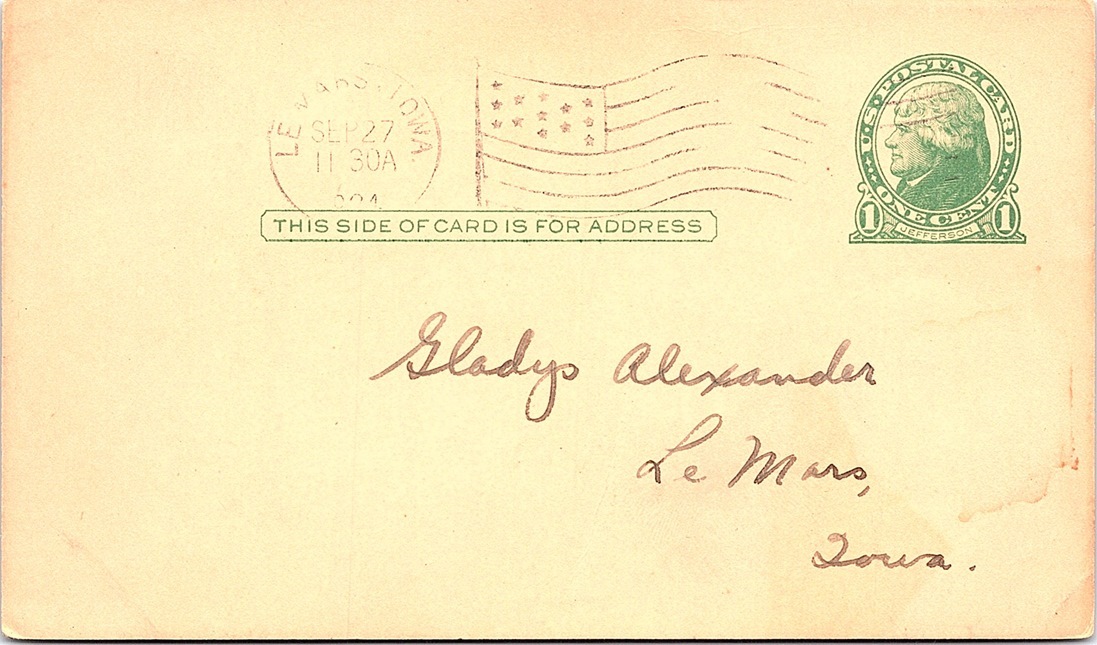 LE MARS, IOWA.
SEP 27
11 30A
U.S. POSTAL CARD
ONE CENT
1 JEFFERSON 1
THIS SIDE OF CARD IS FOR ADDRESS
Gladys Alexander
Le Mars,
Iowa.